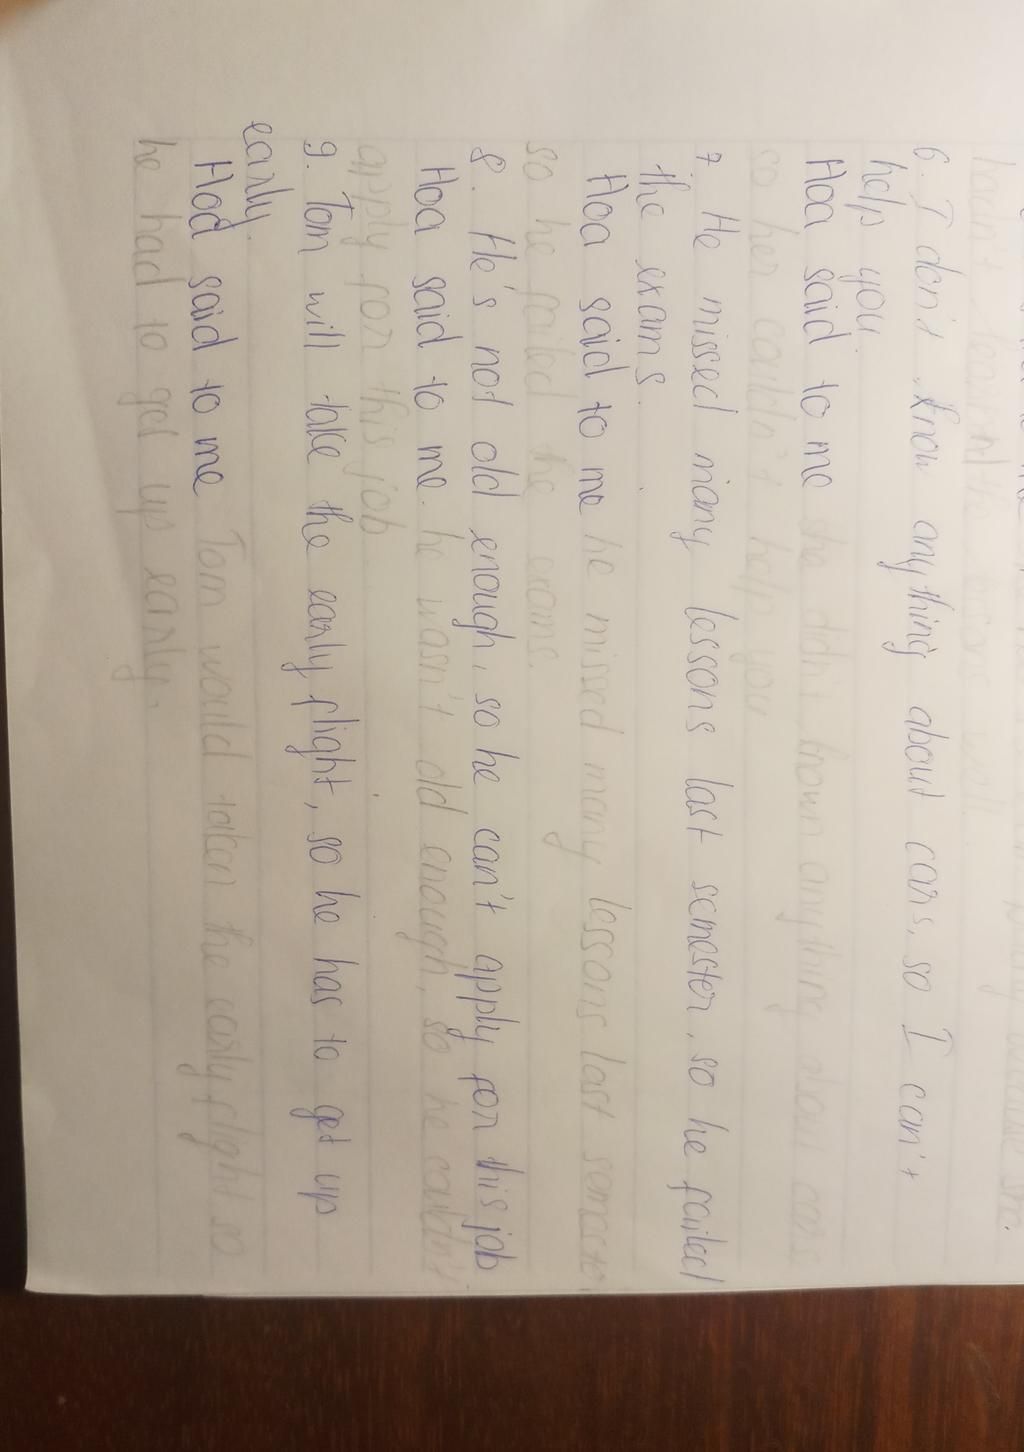 hadn't learnt the lesons well.
6. I don't know anything about cars, so I can't
help you.
Hoa said to me she didn't known anything about cars
so her couldn't help you
7 He missed many lessons last semester, so he failed
the exams.
Hoa said to me he missed many lessons last semester
so he failed the exams.
8. He's not old enough, so he can't apply for this job
Hoa said to me he wasn't old enough, so he couldn't
apply for this job.
9. Tom will take the early flight, so he has to get up
early.
Hoa said to me Tom would taken the early flight so
he had to get up early.